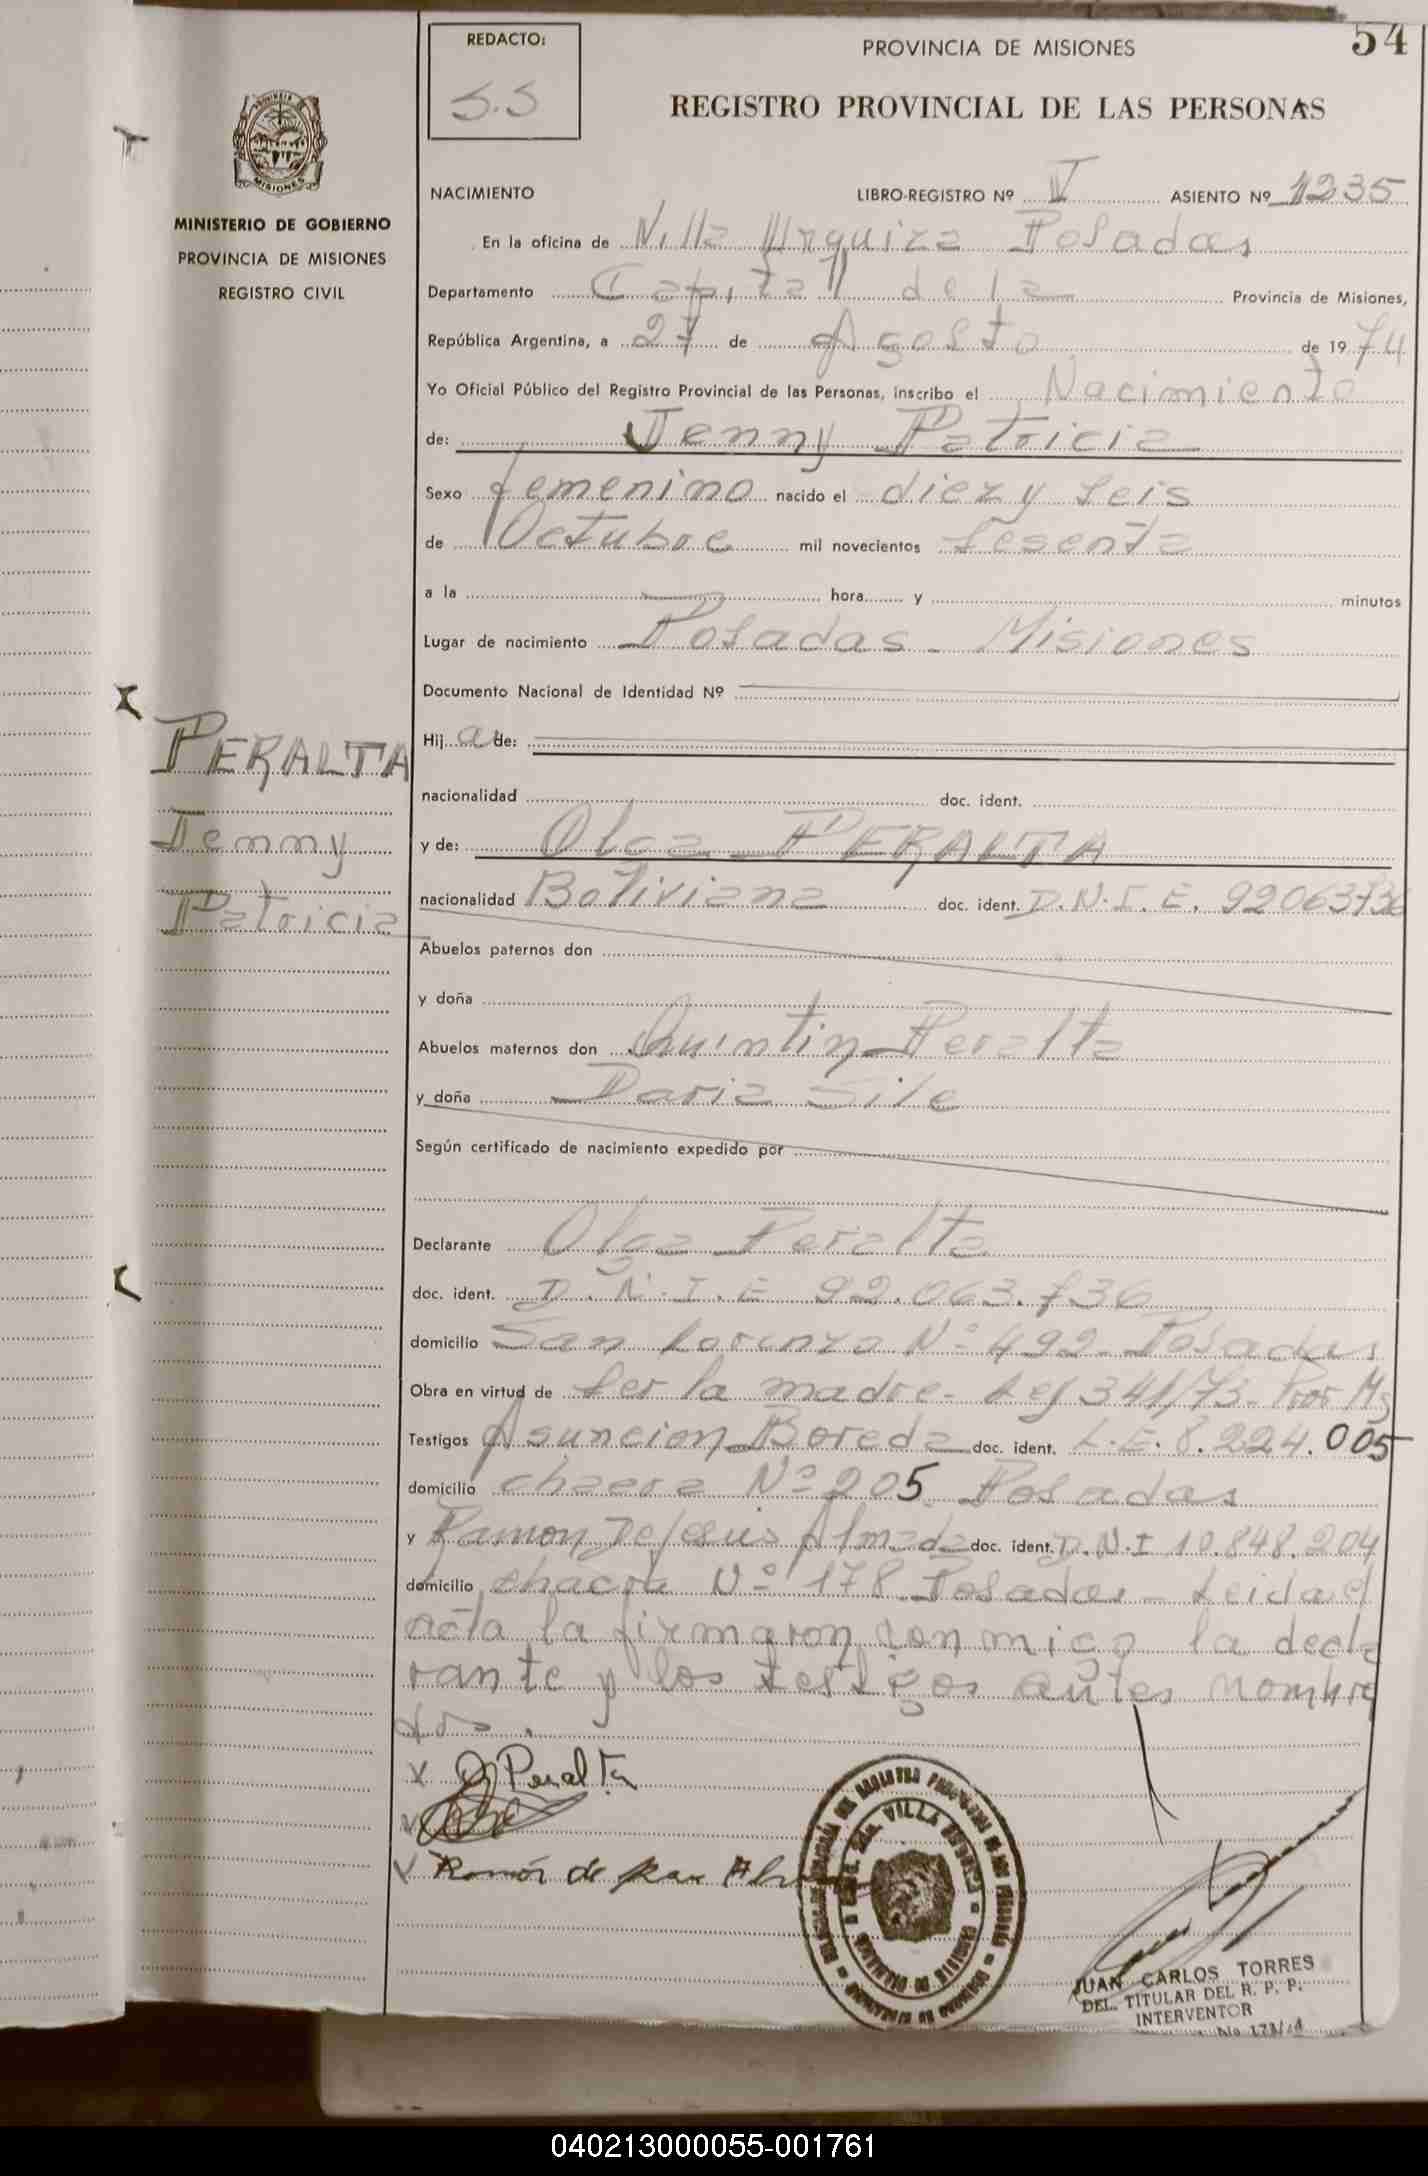 54
REDACTO:
S.S
PROVINCIA DE MISIONES
REGISTRO PROVINCIAL DE LAS PERSONAS
MISIONES
MINISTERIO DE GOBIERNO
PROVINCIA DE MISIONES
REGISTRO CIVIL
NACIMIENTO LIBRO-REGISTRO Nº V ASIENTO Nº 1235
En la oficina de Villa Urquiza Posadas
Departamento Capital de la Provincia de Misiones,
República Argentina, a 27 de Agosto de 1974
Yo Oficial Público del Registro Provincial de las Personas, inscribo el Nacimiento
de: Jenny Patricia
Sexo femenino nacido el diez y seis
de Octubre mil novecientos sesenta
a la hora y minutos
Lugar de nacimiento Posadas - Misiones
Documento Nacional de Identidad Nº
Hij a de:
PERALTA
Jenny
Patricia
nacionalidad doc. ident.
y de: Olga PERALTA
nacionalidad Boliviana doc. ident. D.N.I.E. 92063736
Abuelos paternos don
y doña
Abuelos maternos don Quintin Peralta
y doña Daria Sile
Según certificado de nacimiento expedido por
Declarante Olga Peralta
doc. ident. D.N.I.E 92.063.736
domicilio San Lorenzo Nº 492 - Posadas
Obra en virtud de ser la madre - Ley 341/73 - Prov Ms
Testigos Asuncion Boreda doc. ident. L.E. 8.224.005
domicilio chacra Nº 205 Posadas
y Ramon De Jesus Almada doc. ident. D.N.I 10.848.204
domicilio chacra Nº 178 Posadas - Leida el
acta la firmaron conmigo la decla
rante y los testigos antes nombra
dos.
X O Peralta
Ramón de
VILLA URQUIZA
JUAN CARLOS TORRES
DEL. TITULAR DEL R. P. P.
INTERVENTOR
040213000055-001761